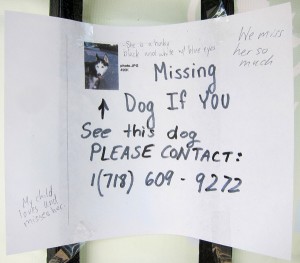 She is a husky
black and white w/ blue eyes
We miss
her so
much
photo.JPG
Missing
Dog If You
See this dog
PLEASE CONTACT:
1(718) 609-9272
My child
loves and
misses her